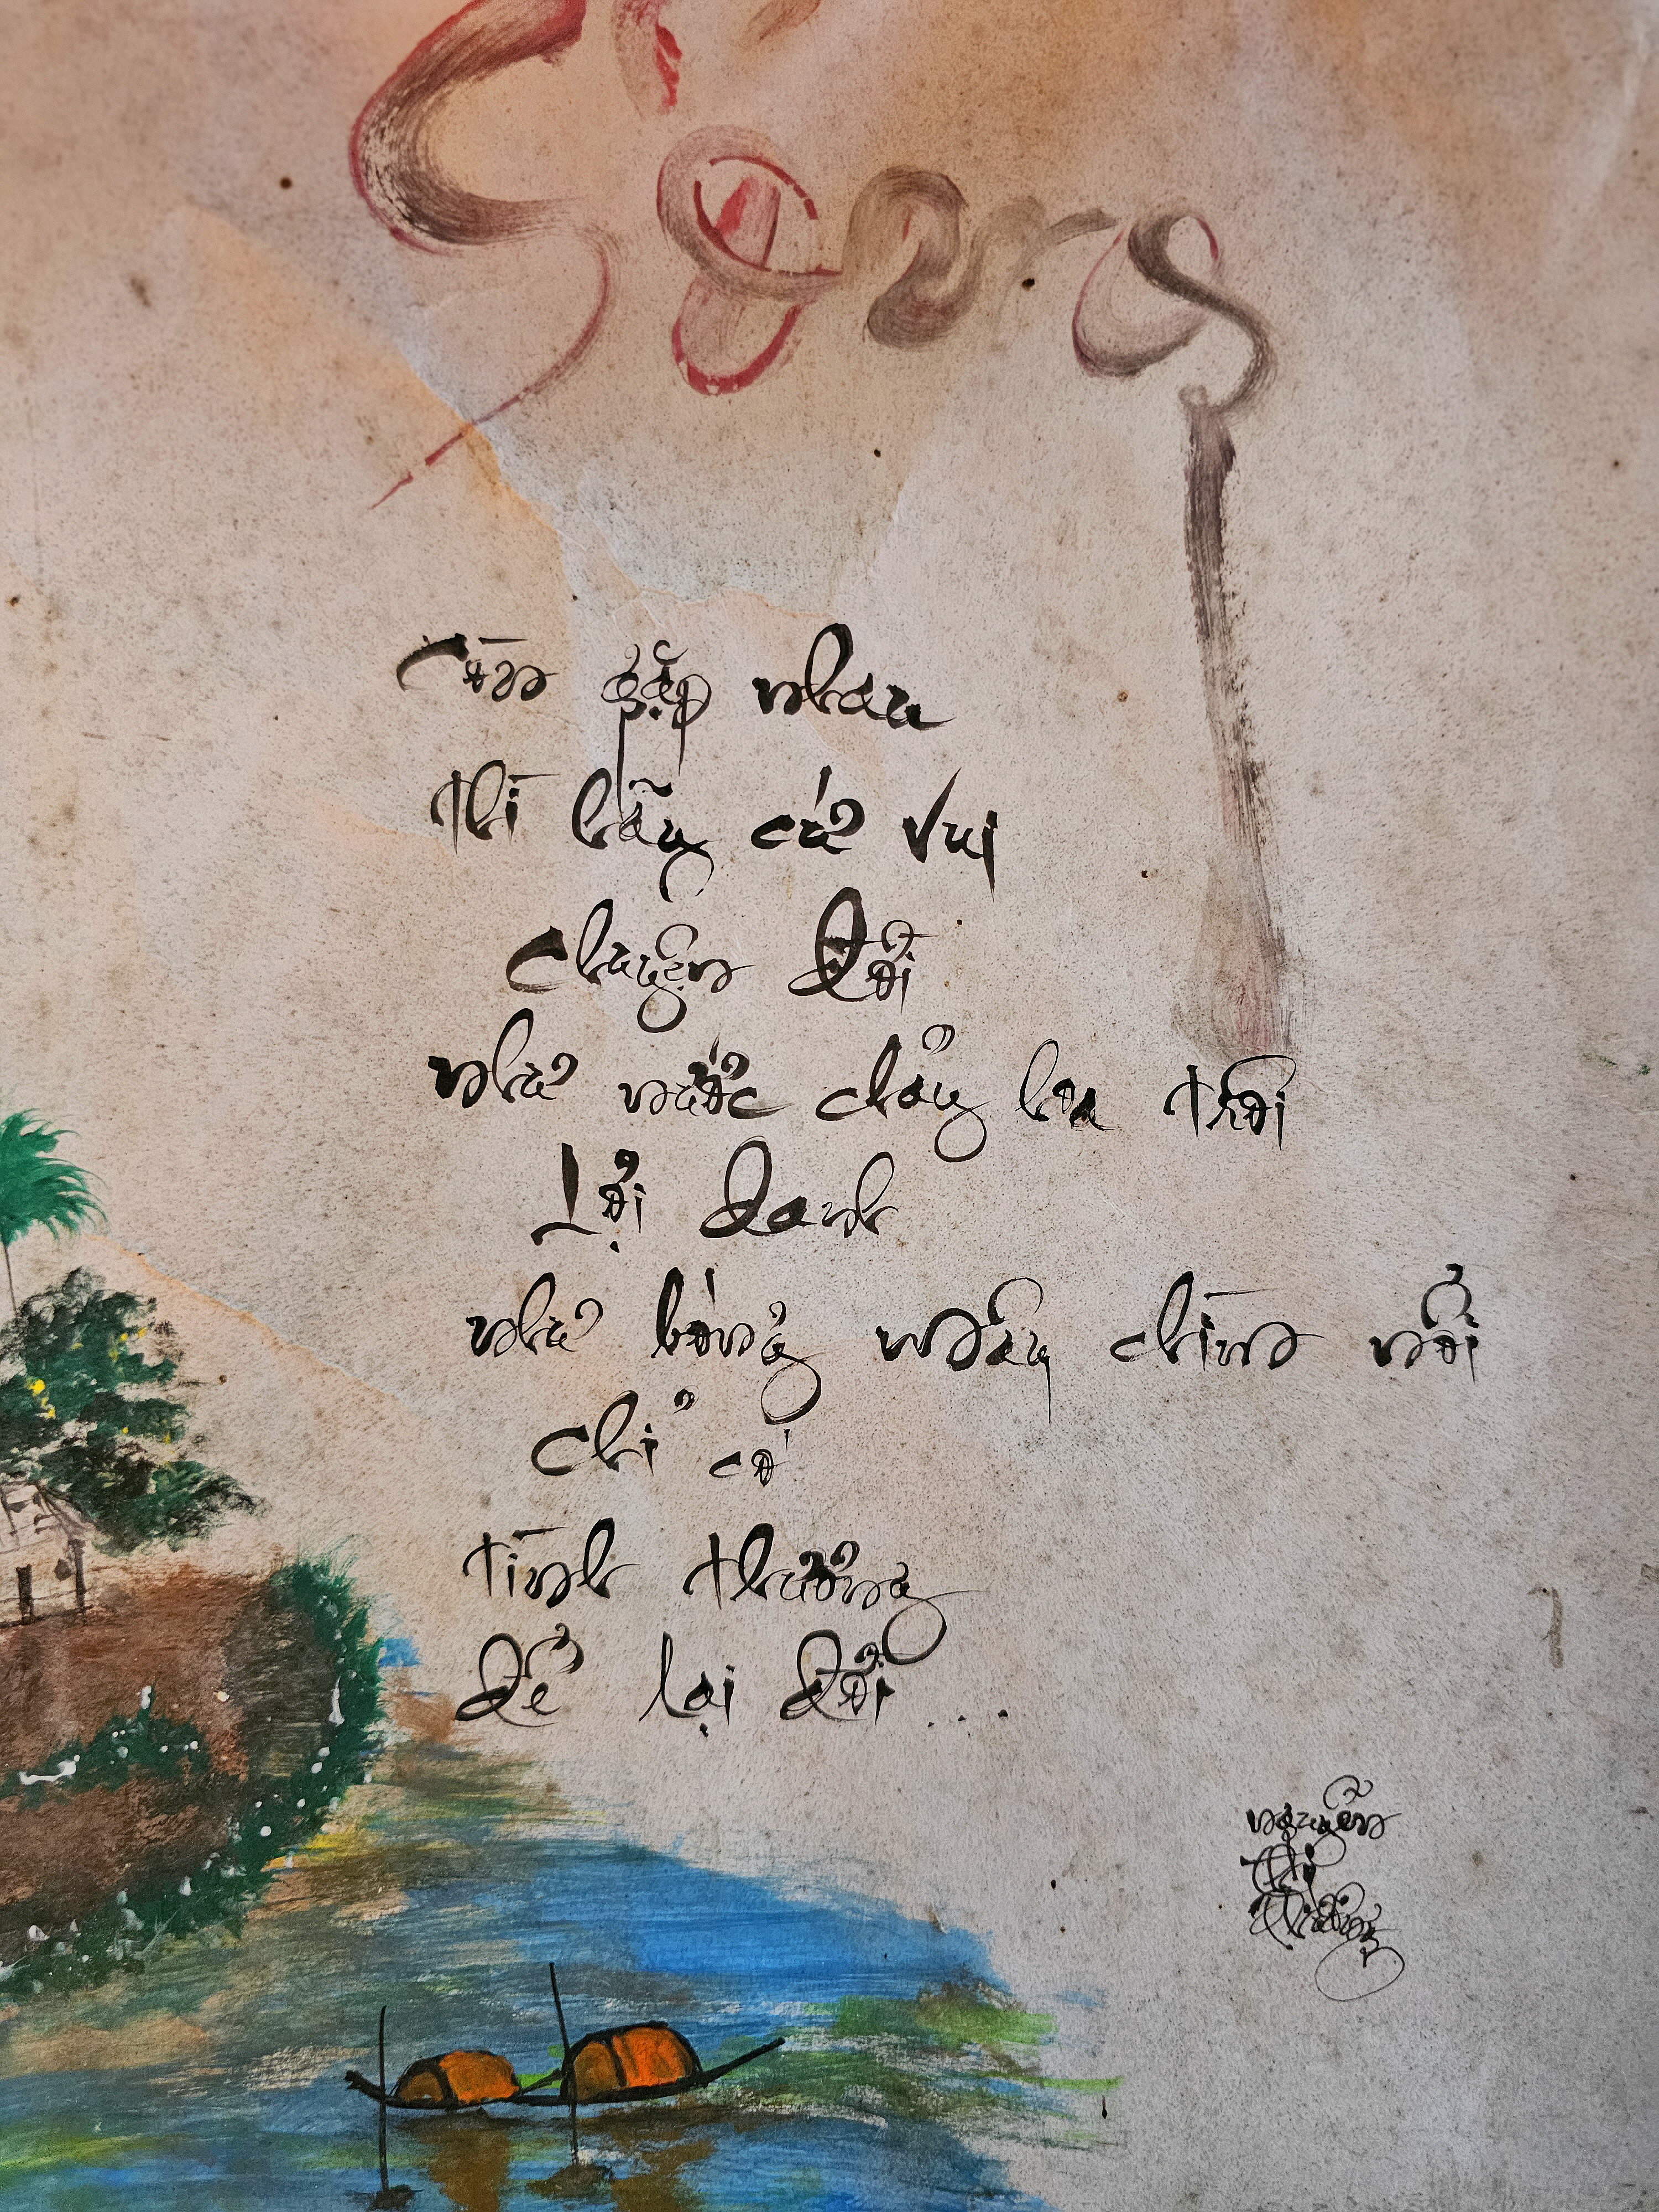 Sống
Còn gặp nhau
thì hãy cứ vui
Chuyện đời
như nước chảy hoa trôi
Lợi danh
như bóng mây chìm nổi
Chỉ có
tình thương
để lại đời ...
nguyễn
thị
thương